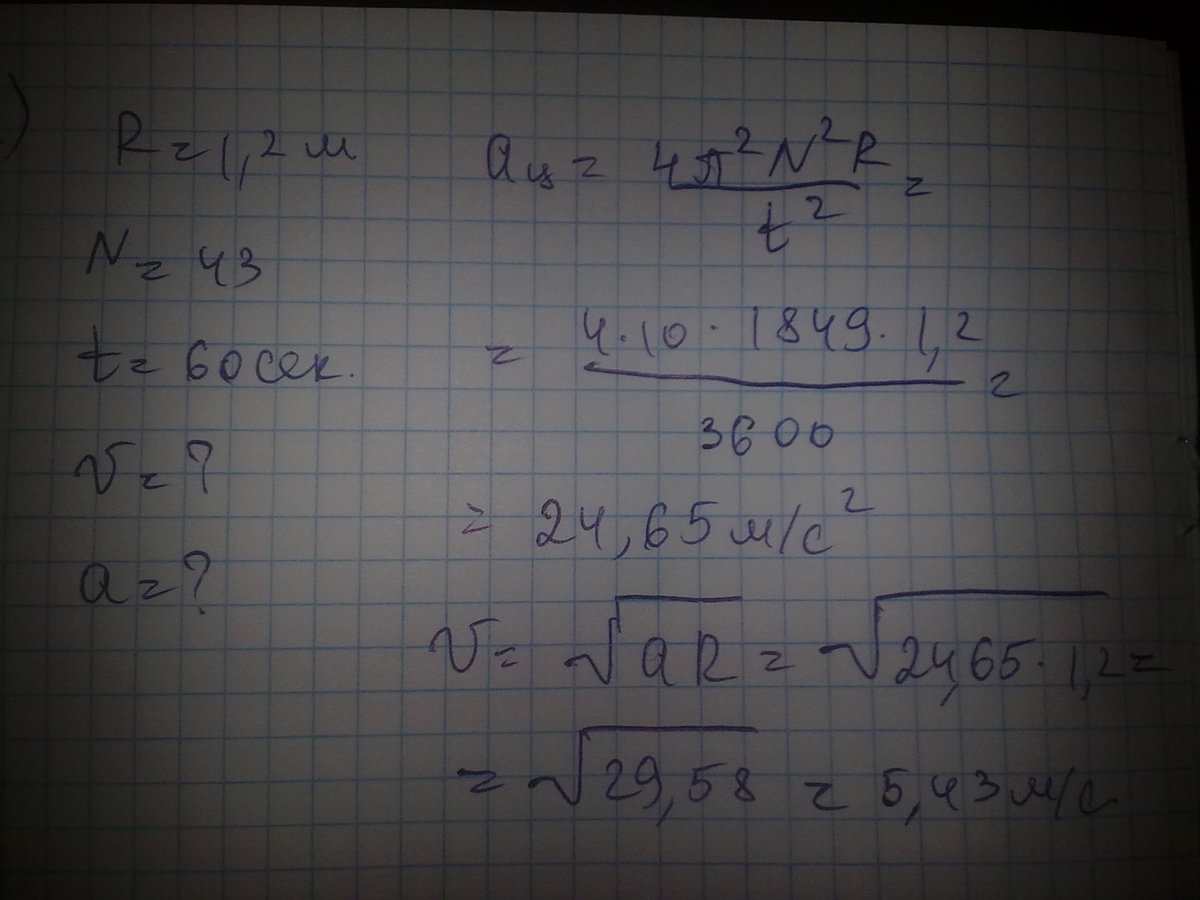 )
R = 1,2 м
N = 43
t = 60 сек.
v = ?
a = ?
aц = 4π²N²R / t² =
= 4·10·1849·1,2 / 3600 =
= 24,65 м/с²
v = √aR = √24,65·1,2 =
= √29,58 = 5,43 м/с